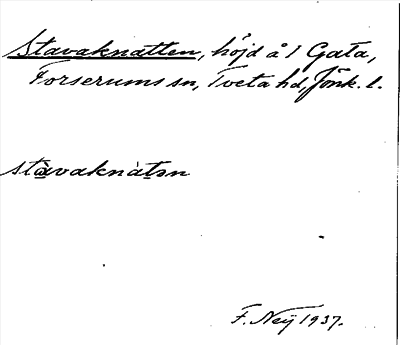 Stavaknatten, höjd å 1 Gata,
Forserums sn, Tveta hd, Jönk. l.
stàvaknàtən
F. Neÿ 1937.